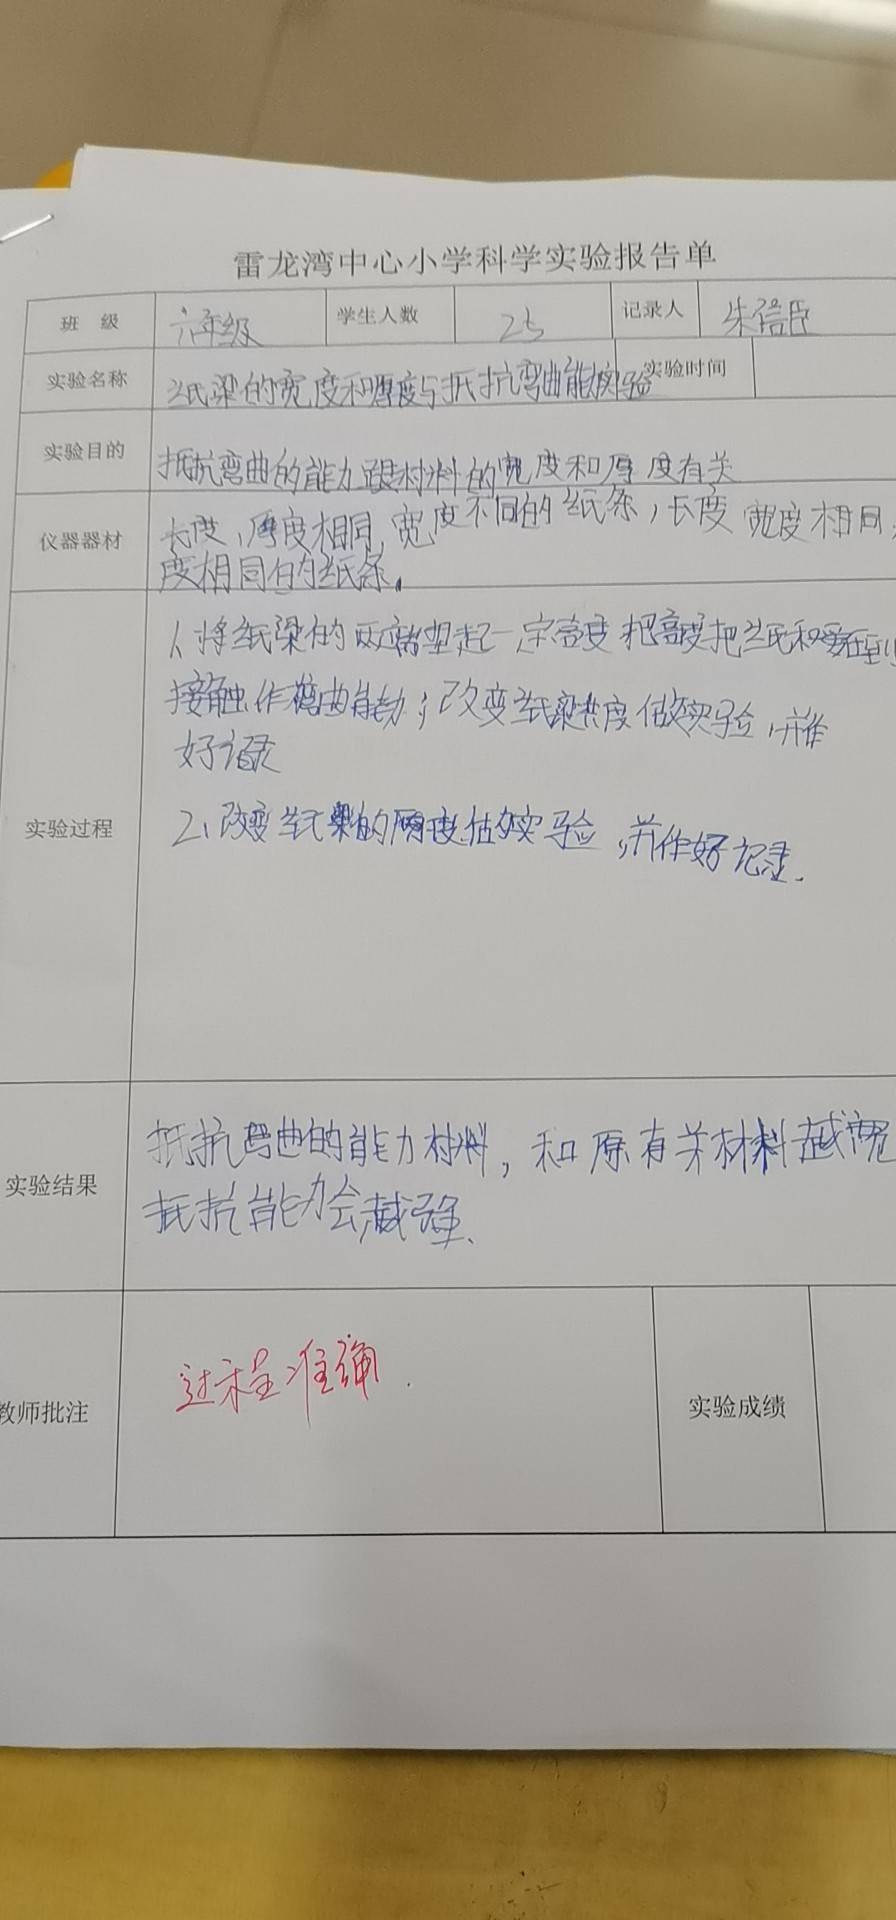 雷龙湾中心小学科学实验报告单
班 级 六年级 学生人数 25 记录人 朱信臣
实验名称 纸梁的宽度和厚度与抵抗弯曲能实验 实验时间
实验目的 抵抗弯曲的能力跟材料的宽度和厚度有关
仪器器材 长度,厚度相同,宽度不同的纸条,长度宽度相同,
度相同的纸条。
1、将纸梁的两端起一定高度把高度把纸和
接触作弯曲能力;改变纸梁度做实验,并作
好
实验过程 2、改变纸梁的厚度做实验,并作好记录.
抵抗弯曲的能力材料,和厚有关材料越宽
实验结果 抵抗能力会越强.
教师批注 过程准确. 实验成绩